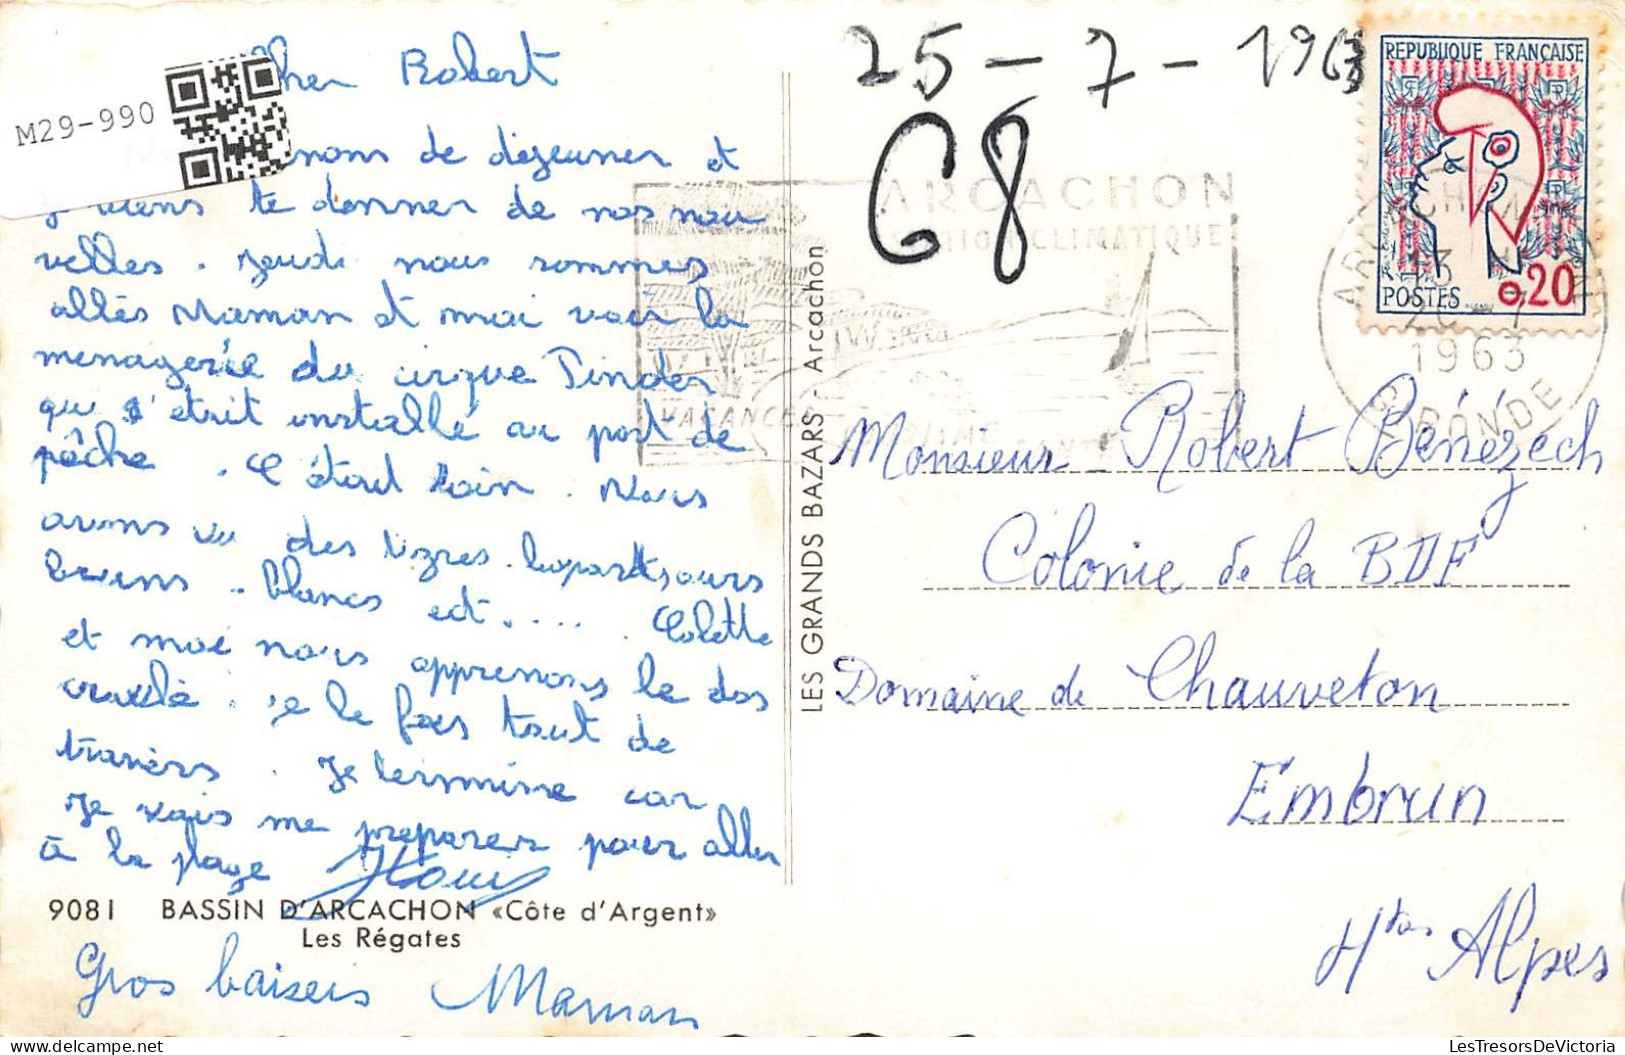 Cher Robert
M29-990
nons de dejeuner et
je viens te donner de nos nou
velles. Jeudi nous sommes
allés Maman et moi voir la
menagerie du cirque Pinder
qui s'etait installé au port de
pêche. C'était loin. Nous
avons vu des tigres. leopards ours
bruns. blancs ect..... Colette
et moi nous apprenons le dos
crawlé. Je le fais tout de
travers. Je termine car
Je vais me preparer pour aller
à la plage
9081 BASSIN D'ARCACHON «Côte d'Argent»
Les Régates
Gros baisers Maman
LES GRANDS BAZARS - Arcachon
25-7-1963
68
ARCACHON
STATION CLIMATIQUE
VACANCES
REPUBLIQUE FRANÇAISE
POSTES 0.20
1963
GIRONDE
Monsieur Robert Bénézech
Colonie de la BDF
Domaine de Chauveton
Embrun
Htes Alpes
LesTresorsDeVictoria.com